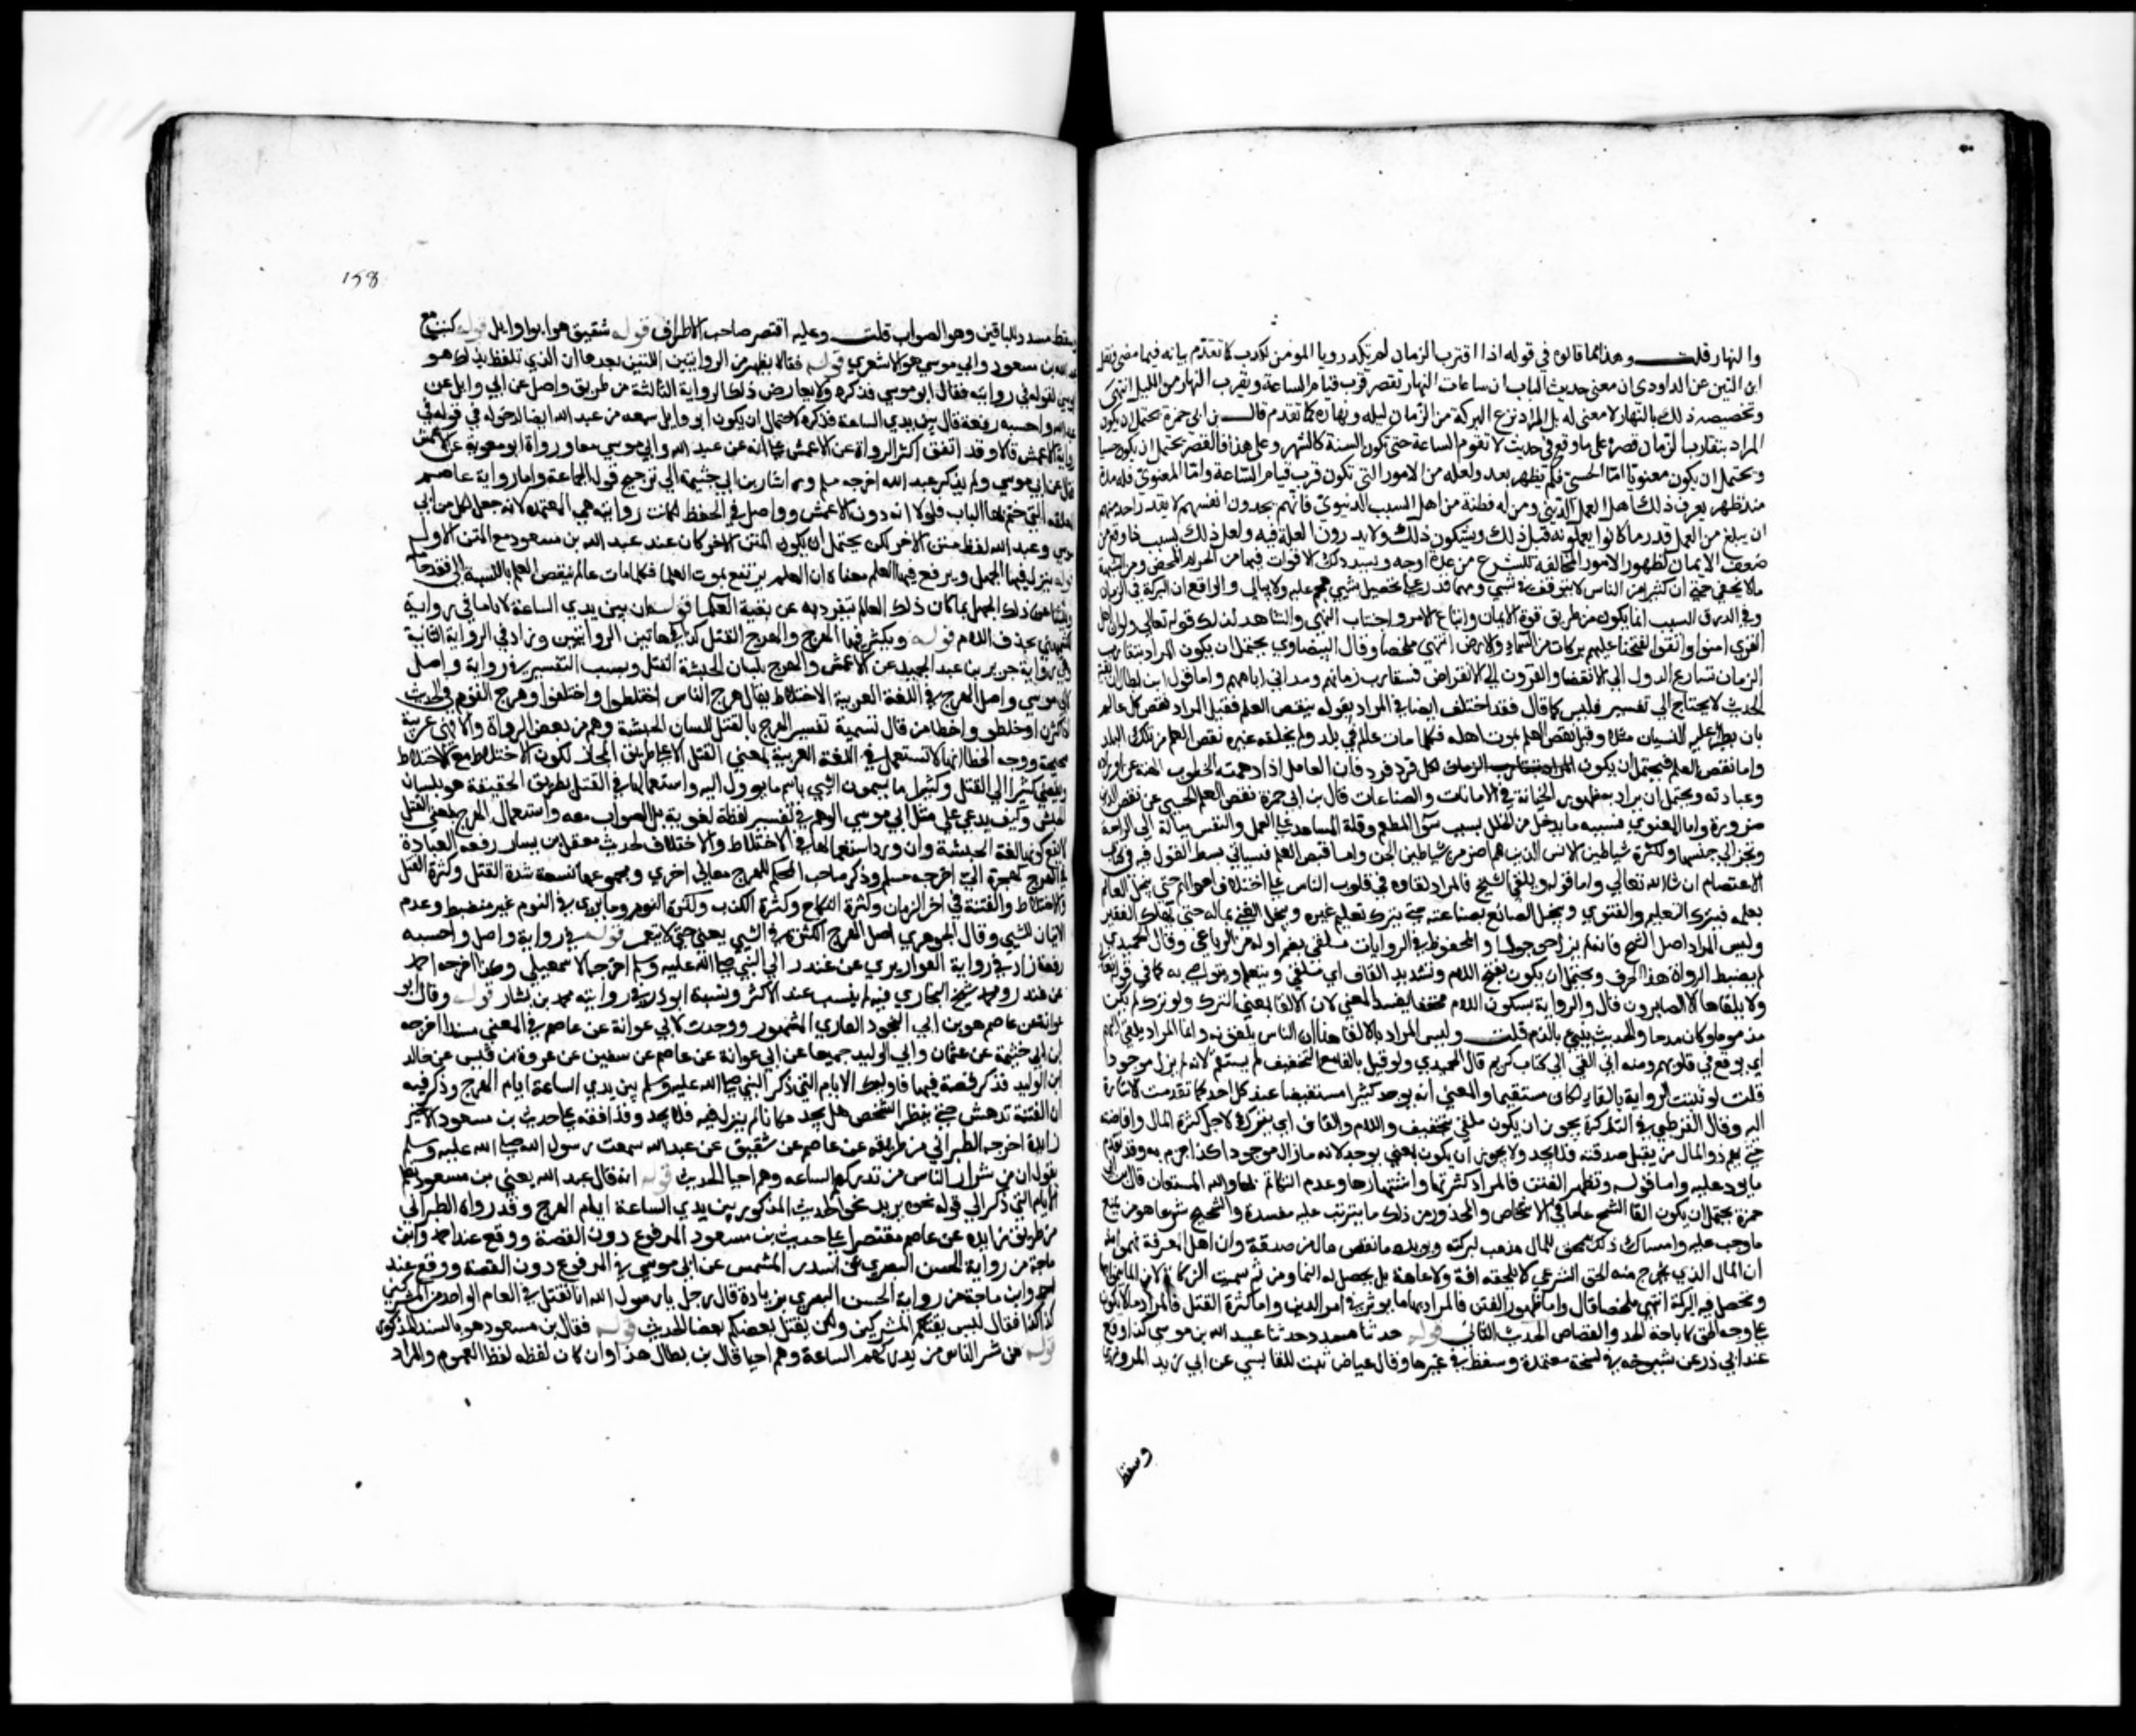 والنهار قلت وهذا مما قالوه في قوله اذا اقترب الزمان لم تكد رويا المومن تكدب كما تقدم بيانه فيما مضى ونقل
ابن التين عن الداودي ان معنى حديث الباب ان ساعات النهار تقصر قرب قيام الساعة ويقرب النهار من الليل انتهى
وتخصيصه ذلك بالنهار لا معنى له بل المراد نزع البركة من الزمان ليله ونهاره كما تقدم قال بن ابي جمرة يحتمل ان يكون
المراد بتقارب الزمان قصره على ما وقع في حديث لا تقوم الساعة حتى تكون السنة كالشهر وعلى هذا فالقصر يحتمل ان يكون حسيا
ويحتمل ان يكون معنويا اما الحسي فلم يظهر بعد ولعله من الامور التي تكون قرب قيام الساعة واما المعنوي فله مدة
منذ ظهر يعرف ذلك اهل العلم الديني ومن له فطنة من اهل السبب الدنيوي فانهم يجدون انفسهم لا يقدر احد منهم
ان يبلغ من العمل قدر ما كانوا يعملونه قبل ذلك ويشكون ذلك ولا يدرون العلة فيه ولعل ذلك بسبب ما وقع من
ضعف الايمان لظهور الامور المخالفة للشرع من عدة اوجه واشد ذلك الاقوات ففيها من الحرام المحض ومن الشبهة
ما لا يخفى حتى ان كثيرا من الناس لا يتوقف في شيء ومهما قدر على تحصيل شيء هجم عليه ولا يبالي والواقع ان البركة في الزمان
وفي الرزق السبب انما يكون من طريق قوة الايمان واتباع الامر واجتناب النهي والشاهد لذلك قوله تعالى ولو ان اهل
القرى امنوا واتقوا لفتحنا عليهم بركات من السماء والارض انتهى ملخصا وقال البيضاوي يحتمل ان يكون المراد بتقارب
الزمان تسارع الدول الى الانقضا والقرون الى الانقراض فيتقارب زمانهم وتدانى ايامهم واما قول ابن بطال بقية
الحديث لا يحتاج الى تفسير فليس كما قال فقد اختلف ايضا في المراد بقوله ينقص العلم فقيل المراد نقص كل عالم
بان يطرا عليه النسيان مثلا وقيل نقص العلم بموت اهله فكلما مات عالم في بلد ولم يخلفه غيره نقص العلم من تلك البلد
واما نقص العلم فيحتمل ان يكون لكل فرد فرد فان العامل اذا دهمته الخطوب الهته عن اوراده
وعبادته ويحتمل ان يراد به ظهور الخيانة في الامانات والصناعات قال بن ابي جمرة نقص العلم الحسي عن نقص الدين
ضرورة واما المعنوي فسببه ما يدخل من الخلل بسبب سوء المطعم وقلة المساعد على العمل والنفس ميالة الى الراحة
وتحن الى جنسها ولكثرة شياطين الانس الذين هم اضر من شياطين الجن واما قبض العلم فسياتي بسط القول فيه في كتاب
الاعتصام ان شا الله تعالى واما قوله ويلقى الشح فالمراد القاوه في قلوب الناس على اختلاف احوالهم حتى يبخل العالم
بعلمه فيترك التعليم والفتوى ويبخل الصانع بصناعته حتى يترك تعليم غيره ويبخل الغني بماله حتى يهلك الفقير
وليس المراد اصل الشح فانه لم يزل موجودا والمحفوظ في الروايات يلقى بضم اوله من الرباعي وقال الحميدي
لم يضبط الرواة هذا الحرف ويحتمل ان يكون بفتح اللام وتشديد القاف اي يتلقى ويتعلم ويتواصى به كما في قوله تعالى
ولا يلقاها الا الصابرون قال والرواية بسكون اللام مخففا يفسد المعنى لان الالقا بمعنى الترك ولو ترك لم يكن
مذموما وكان مدحا والحديث ينبي بالذم قلت وليس المراد بالالقا هنا ان الناس يلقونه وانما المراد يلقى اليهم
اي يوقع في قلوبهم ومنه اني القي الي كتاب كريم قال الحميدي ولو قيل بالفا مع التخفيف لم يستقم لانه لم يزل موجودا
قلت لو ثبتت الرواية بالفا لكان مستقيما والمعنى انه يوجد كثيرا مستفيضا عند كل احد كما تقدمت الاشارة
اليه وقال القرطبي في التذكرة يجوز ان يكون يلقى بتخفيف واللام والقاف اي يترك لاجل كثرة المال وافاضته
حتى يهم ذو المال من يقبل صدقته فلا يجد ولا يجوز ان يكون بمعنى يوجد لانه مازال موجودا كذا جزم به وقد تقدم
ما يرد عليه واما قوله وتظهر الفتن فالمراد كثرتها واشتهارها وعدم التكاتم بها والله المستعان قال بن ابي
جمرة يحتمل ان يكون القا الشح عاما في الاشخاص والمحذور من ذلك ما يترتب عليه مفسدة والشحيح شرعا هو من يمنع
ما وجب عليه وامساك ذلك ممحق للمال مذهب لبركته ويويده ما نقص مال من صدقة فان اهل المعرفة فهموا منه
ان المال الذي يخرج منه الحق الشرعي لا يلحقه افة ولا عاهة بل يحصل له النما ومن ثم سميت الزكاة لان المال ينمو بها
وتحصل فيه البركة انتهى ملخصا قال واما ظهور الفتن فالمراد بها ما يوثر في امر الدين واما كثرة القتل فالمراد ما لا يكون
على وجه الحق كاباحة الحد والقصاص الحديث الثاني قوله حدثنا مسدد حدثنا عبيد الله بن موسى كذا وقع
عند ابي ذر عن شيوخه في نسخة معتمدة وسقط في غيرها وقال عياض ثبت للقابسي عن ابي زيد المروزي
وسقط
158
وسقط مسدد للباقين وهو الصواب قلت وعليه اقتصر صاحب الاطراف قوله شقيق هو ابو وايل قوله كنت مع
عبد الله بن مسعود وابي موسى هو الاشعري قوله فقالا يظهر من الروايتين اللتين بعدها ان الذي تلفظ بذلك هو
ابو موسى لقوله في روايته فقال ابو موسى فذكره ولا يعارض ذلك الرواية الثالثة من طريق واصل عن ابي وايل عن
عبد الله واحسبه رفعه قال بين يدي الساعة فذكره لاحتمال ان يكون ابو وايل سمعه من عبد الله ايضا لدخوله في قوله في
رواية الاعمش قالا وقد اتفق اكثر الرواة عن الاعمش على انه عن عبد الله وابي موسى معا ورواه ابو معوية عن الاعمش
فقال عن ابي موسى ولم يذكر عبد الله اخرجه مسلم واشار بن ابي خيثمة الى ترجيح قول الجماعة واما رواية عاصم
المعلقة التي ختم بها الباب فلولا انه دون الاعمش وواصل في الحفظ لكانت روايته هي المعتمدة لانه جعل لكل من ابي
موسى وعبد الله لفظ متن الاخر لكن يحتمل ان يكون المتن الاخر كان عند عبد الله بن مسعود مع المتن الاول
قوله ينزل فيها الجهل ويرفع فيها العلم معناه ان العلم يرتفع بموت العلما فكلما مات عالم نقص العلم بالنسبة الى فقد حامله
وينشا عن ذلك الجهل بما كان ذلك العالم ينفرد به عن بقية العلما قوله ان بين يدي الساعة لاياما في رواية
الكشميهني بحذف اللام قوله ويكثر فيها الهرج والهرج القتل كذا في هاتين الروايتين وزاد في الرواية الثانية
وهي رواية جرير بن عبد الحميد عن الاعمش والهرج بلسان الحبشة القتل ونسب التفسير في رواية واصل
لابي موسى واصل الهرج في اللغة العربية الاختلاط يقال هرج الناس اختلطوا واختلفوا وهرج القوم في الحديث
اذا كثروا وخلطوا واخطا من قال نسبة تفسير الهرج بالقتل للسان الحبشة وهم من بعض الرواة والا فهي عربية
صحيحة ووجه الخطا انها لا تستعمل في اللغة العربية بمعنى القتل الا على طريق المجاز لكون الاختلاط مع الاختلاف
يفضي كثيرا الى القتل وكثيرا ما يسمون الشيء باسم ما يوول اليه واستعمالها في القتل بطريق الحقيقة هو بلسان
الحبش وكيف يدعى على مثل ابي موسى الوهم في تفسير لفظة لغوية بل الصواب معه واستعمال الهرج بمعنى القتل
لا يمنع كونها لغة الحبشة وان ورد استعمالها في الاختلاط والاختلاف لحديث معقل بن يسار رفعه العبادة
في الهرج كهجرة الي اخرجه مسلم وذكر صاحب المحكم للهرج معاني اخرى ومجموعها تسعة شدة القتل وكثرة القتل
والاختلاط والفتنة في اخر الزمان وكثرة النكاح وكثرة الكذب وكثرة النوم وما يرى في النوم غير منضبط وعدم
الاتقان للشيء وقال الجوهري اصل الهرج الكثرة في الشيء يعني حتى لا يتميز قوله في رواية واصل واحسبه
رفعه زاد في رواية القواريري عن غندر الى النبي صلى الله عليه وسلم اخرجه الاسمعيلي وكذا اخرجه احمد
عن غندر ومحمد شيخ البخاري فيه لم ينسب عند الاكثر ونسبه ابو ذر في روايته محمد بن بشار قوله وقال ابو
عوانة عن عاصم هو بن ابي النجود القاري المشهور ووجدت لابي عوانة عن عاصم في المعنى سندا اخر اخرجه
ابن ابي خيثمة عن عفان وابي الوليد جميعا عن ابي عوانة عن عاصم عن سفين عن عروة بن قيس عن خالد
ابن الوليد فذكر قصة فيها فاوليك الايام التي ذكر النبي صلى الله عليه وسلم بين يدي الساعة ايام الهرج وذكر فيه
ان الفتنة تدهش حتى ينظر الشخص هل يجد مكانا لم ينزل فيه فلا يجد وقد وافقه على حديث بن مسعود الاخير
زايدة اخرجه الطبراني من طريقه عن عاصم عن شقيق عن عبد الله سمعت رسول الله صلى الله عليه وسلم
يقول ان من شرار الناس من تدركهم الساعه وهم احيا الحديث قوله انه قال عبد الله يعني بن مسعود تعلم
الايام التي ذكر الى قوله نحوه يريد نحو الحديث المذكور بين يدي الساعة ايام الهرج وقد رواه الطبراني
من طريق زايده عن عاصم مقتصرا على حديث بن مسعود المرفوع دون القصة ووقع عند احمد وابن
ماجة من رواية الحسن البصري عن اسيد بن المتشمس عن ابي موسى في المرفوع دون القصة ووقع عند
احمد وابن ماجة من رواية الحسن البصري بن زيادة قال رجل يا رسول الله انا نقتل في العام الواحد من المشركين
كذا كذا فقال ليس بقتلكم المشركين ولكن بقتل بعضكم بعضا الحديث قوله فقال بن مسعود هو بالسند المذكور
قوله من شر الناس من تدركهم الساعة وهم احيا قال بن بطال هذا وان كان لفظه لفظ العموم والمراد